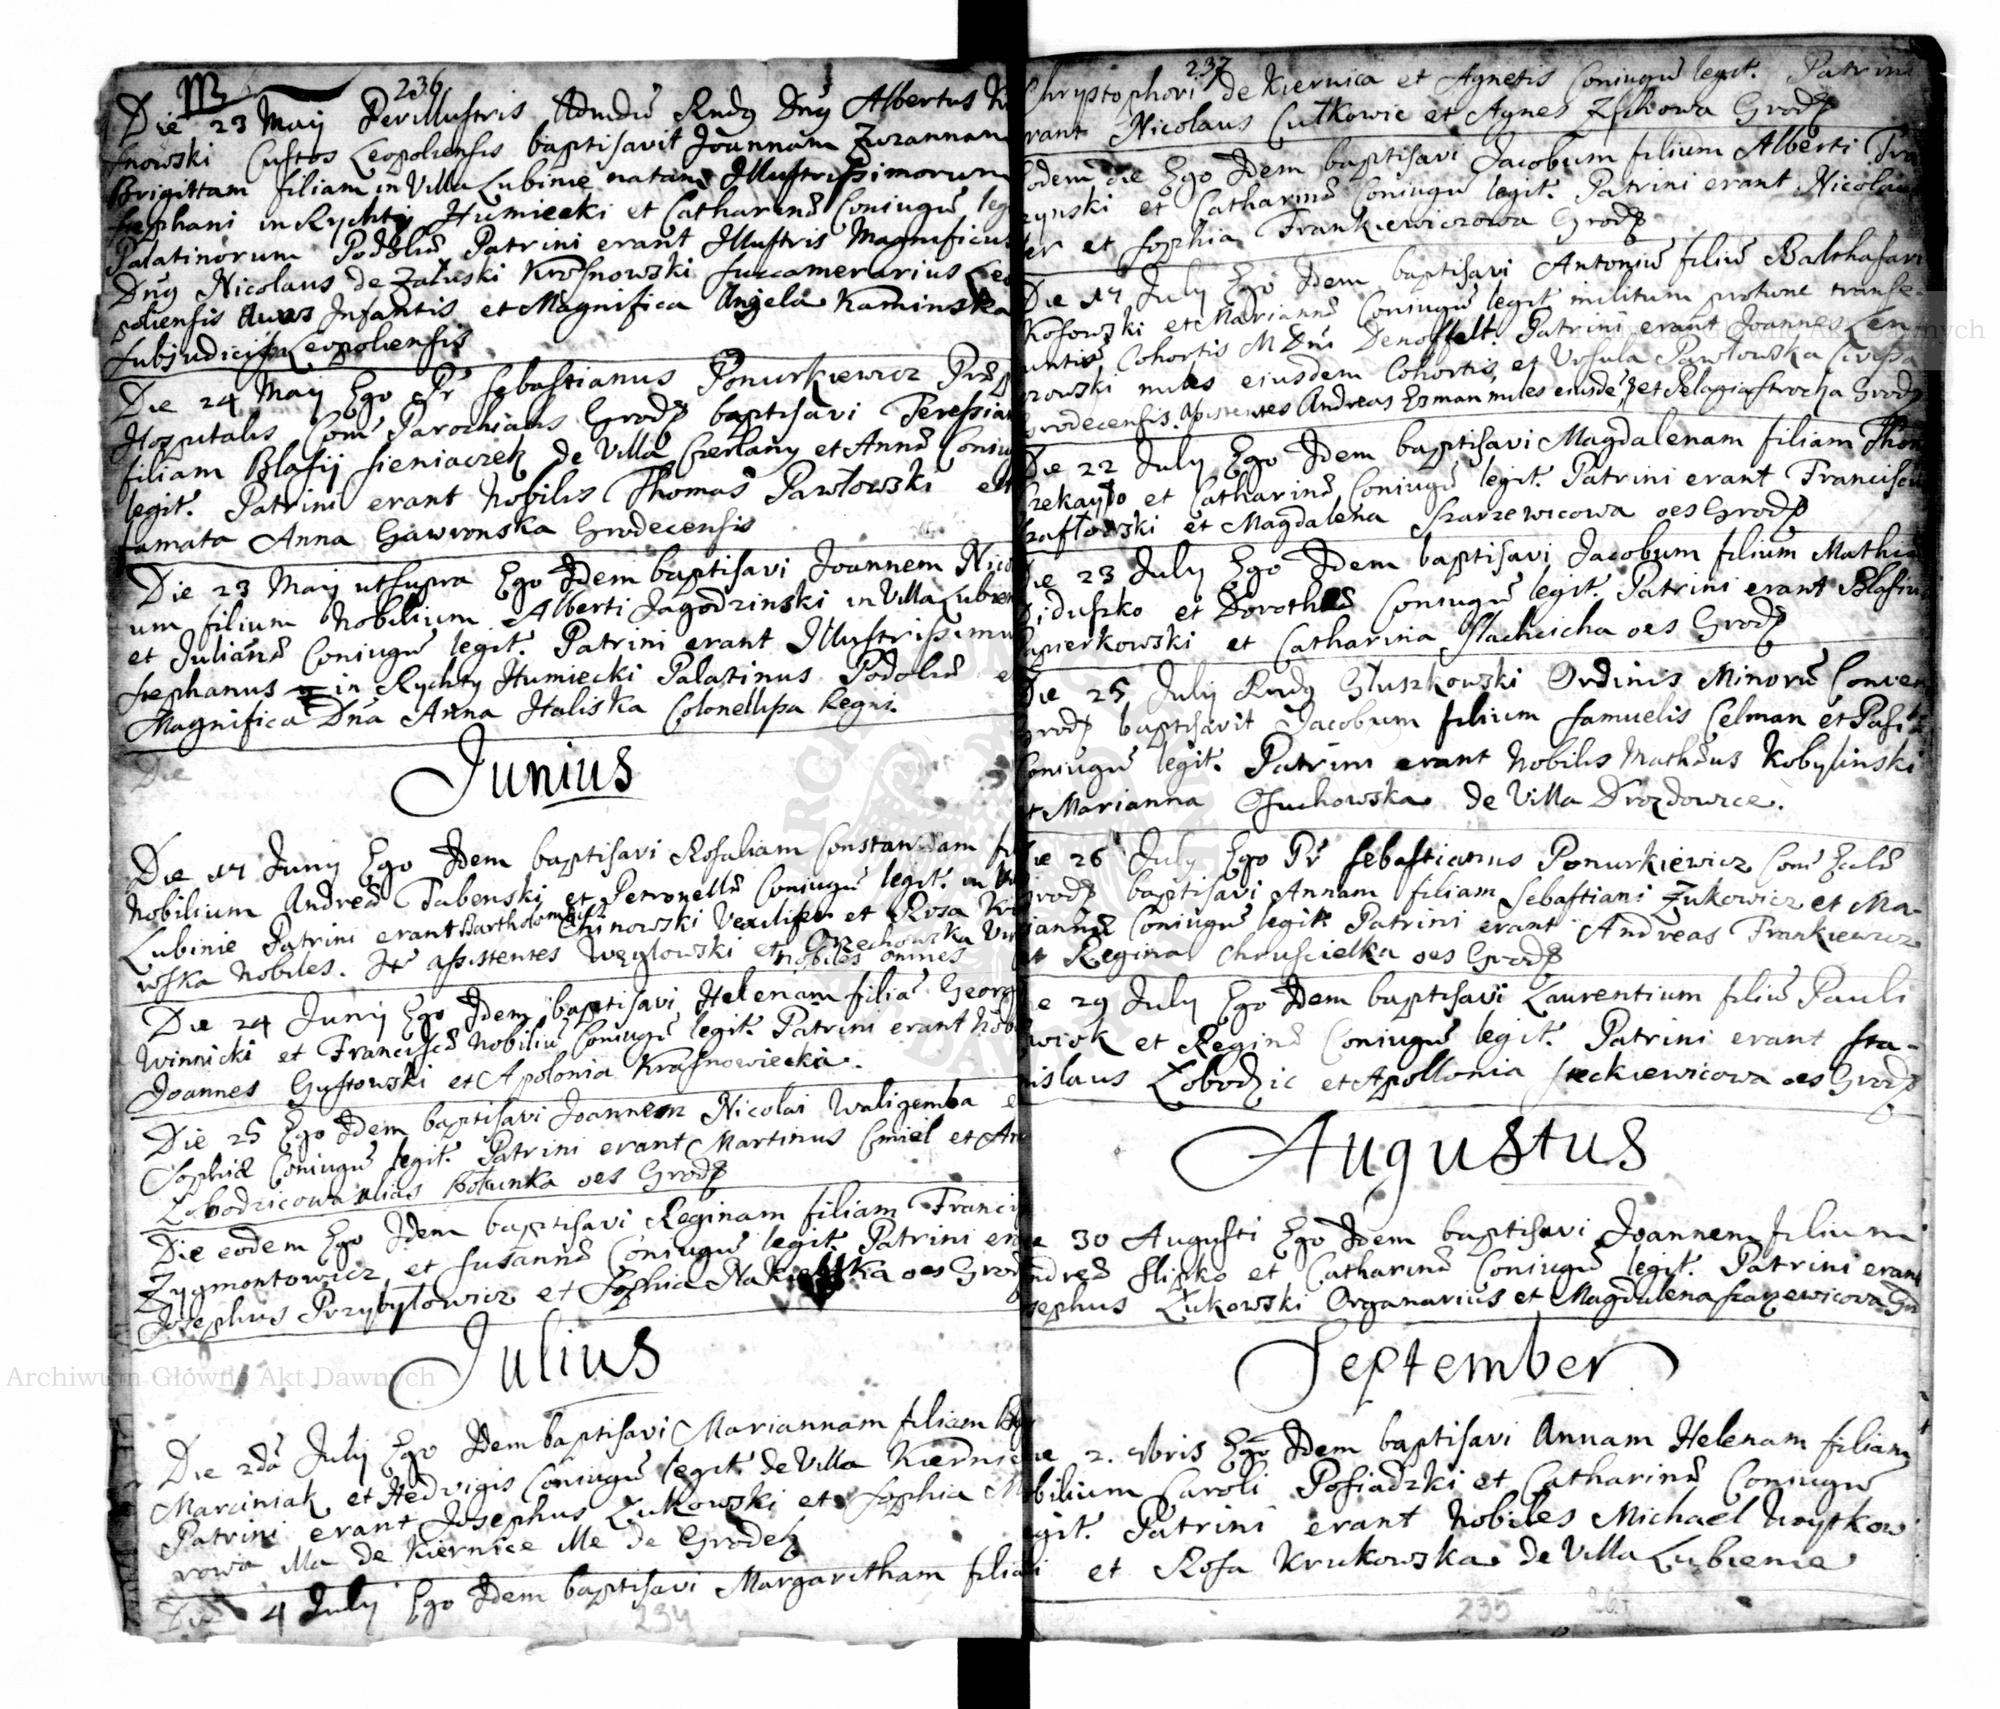 236
Die 23 Maij Perillustris Admdū Rndꝰ Dnꝰ Albertus
snowski Custos Leopoliensis baptisavit Joannam Zuzannam
Brigittam filiam in Villa Lubinie natam Illustrissimorum
Stephani in Rychty Humiecki et Catharinæ Coniugū leg
Palatinorum Podoliæ Patrini erant Illustris Magnificus
Dnꝰ Nicolaus de Załuski Krosnowski Succamerarius Leo
poliensis Avus Infantis et Magnifica Angela Kaminska
Subjudicissa Leopoliensis
Die 24 Maij Ego Pr Sebastianus Ponurkiewicz Præp
Hospitalis Com Parochialis Grod baptisavi Teressiam
filiam Blasij Sieniaczek de Villa Czerlany et Annæ Coniu
legit. Patrini erant Nobilis Thomas Pawłowski et
famata Anna Gawronska Grodecensis
Die 23 Maij ut supra Ego Idem baptisavi Joannem Nico
um filium Nobilium Alberti Jagodzinski in Villa Lubien
et Julianæ Coniugū legit. Patrini erant Illustrissimu
Stephanus in Rychty Humiecki Palatinus Podoliæ e
Magnifica Dna Anna Haliska Colonellissa Regni.
Die
Junius
Die 17 Junij Ego Idem baptisavi Rosaliam Constantiam fi
Nobilium Andreæ Tabenski et Petronellæ Coniugū legit. in Vi
Lubinie Patrini erant Bartholomæus Chinowski Vexilifer et Rosa Kru
wska Nobiles. It assistentes Węglowski et Orzechowska Vir
nobiles omnes
Die 24 Junij Ego Idem baptisavi Helenam filiā Georg
Winnicki et Franciscæ Nobiliū Coniugū legit. Patrini erant Nob
Joannes Gustowski et Apolonia Krasnowiecka.
Die 25 Ego Idem baptisavi Joannem Nicolai Waligemba e
Sophiæ Coniugū legit. Patrini erant Martinus Cmiel et An
Łobodzicowa alias Bołunka oes Grod
Die eodem Ego Idem baptisavi Reginam filiam Franci
Zygmontowicz et Susannæ Coniugū legit. Patrini era
Josephus Przybyłowicz et Sophia oes Grod
Julius
Die 2dā July Ego Idem baptisavi Mariannam filiam
Marciniak et Hedvigis Coniugū legit. de Villa Kiernic
Patrini erant Josephus Łukowski et Sophia M
rowa, illa de Kiernice ille de Grodek
Die 4 July Ego Idem baptisavi Margaretham filiam
234
237
Chrystophori de Kiernica et Agnetis Coniugū legit. Patrini
erant Nicolaus Cutkowic et Agnes Grod
Eodem die Ego Idem baptisavi Jacobum filium Alberti
zynski et Catharinæ Coniugū legit. Patrini erant Nicolaus
ler et Sophia Frankiewiczowa Grod
Die 17 July Ego Idem baptisavi Antoniū filiū Balthasari
Kosowski et Mariannæ Coniugū legit militum protunc transe
untis Cohortis M Dni Denoffelt. Patrini erant Joannes Len
zowski miles eiusdem Cohortis, et Ursula Pawłowska Civissa
Grodecensis. Assistentes Andreas Ezman miles eiusdē et Pelagia Strocka Grod
Die 22 July Ego Idem baptisavi Magdalenam filiam Thom
Czekaydo et Catharinæ Coniugū legit. Patrini erant Franciscu
Szaflowski et Magdalena Szarzewicowa oes Grod
Die 23 July Ego Idem baptisavi Jacobum filium Mathiæ
Diduszko et Dorotheæ Coniugū legit. Patrini erant Blasiu
apierkowski et Catharina Slachcicha oes Grod
Die 25 July Rndꝰ Głuszkowski Ordinis Minorū Conven
Grod baptisavit Jacobum filium Samuelis Celman et
Coniugū legit. Patrini erant Nobilis Mathæus Kobylinski
et Marianna Osuchowska de Villa Drozdowice.
Die 26 July Ego Pr Sebastianus Ponurkiewicz Com Eccliæ
Grod baptisavi Annam filiam Sebastiani Zukowicz et Ma-
riannæ Coniugū legit Patrini erant Andreas Frankiewicz
et Regina Chruscielka oes Grod
Die 29 July Ego Idem baptisavi Laurentium filiū Pauli
wiok et Reginæ Coniugū legit. Patrini erant Sta-
nislaus Łobodzic et Apollonia Steckiewicowa oes Grod
Augustus
Die 30 Augusti Ego Idem baptisavi Joannem filium
Andreæ Slipko et Catharinæ Coniugū legit. Patrini erant
Josephus Łukowski Organarius et Magdalena Szarzewicova Gr
September
Die 2. 7bris Ego Idem baptisavi Annam Helenam filiam
Nobilium Caroli Posiadzki et Catharinæ Coniugū
legit. Patrini erant Nobiles Michael Woytkow
et Rosa Krukowska de Villa Lubienie
235